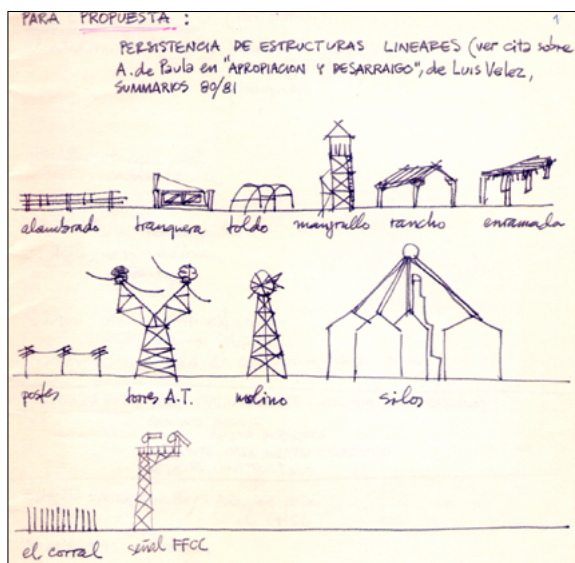 PARA PROPUESTA :
1
PERSISTENCIA DE ESTRUCTURAS LINEARES (ver cita sobre
A. de Paula en "APROPIACION Y DESARRAIGO", de Luis Velez,
SUMMARIOS 80/81
alambrado tranquera toldo mangrullo rancho enramada
postes torres A.T. molino silos
el corral señal FFCC